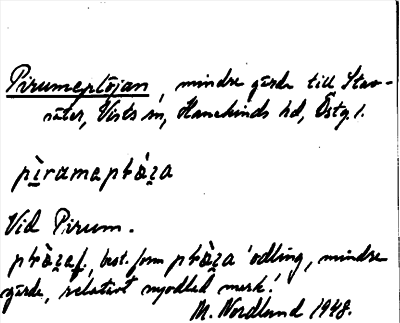 Pirumeptöjan, mindre gärde till Stav-
säter, Vists sn, Hanekinds hd, Östg. l.
pìramaptòza
Vid Pirum.
ptòza f., best. form ptòza 'odling, mindre
gärde, relativt nyodlad mark.'
M. Nordlund 1948.